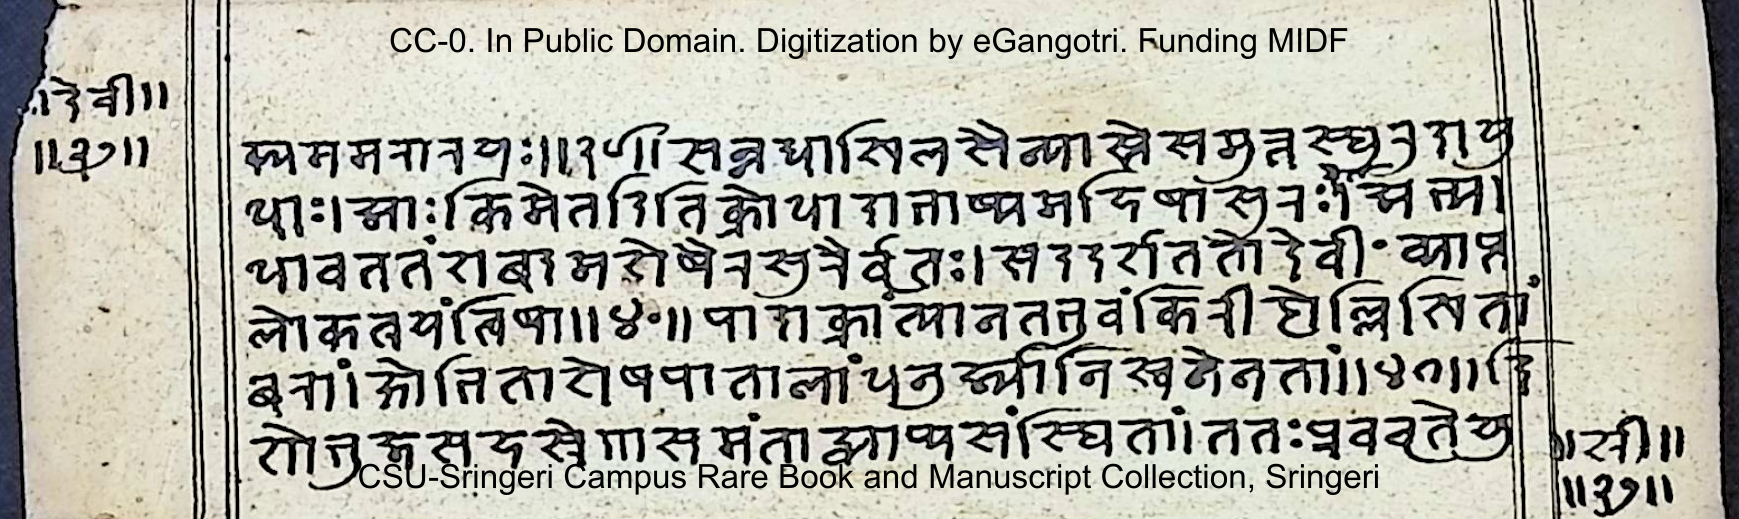 CC-0. In Public Domain. Digitization by eGangotri. Funding MIDF
॥देवी॥
॥३७॥
क्यममरानयः॥३९॥सन्नधाखिलसैन्यास्तेसमुत्तस्थुरुदायु
धाः।आःकिमेतदितिक्रोधादाभाष्यमहिषासुरः।अभ्या
धावततंशब्दमशेषैरसुरैर्वृतः।सददर्शततोदेवीं व्याप्त
लोकत्रयंत्विषा॥४०॥पादाक्रांत्यानतभुवंकिरीटोल्लिखितां
बरां।क्षोभिताशेषपातालांधनुर्ज्यानिस्वनेनतां॥४१॥दि
शोभुजसहस्रेणसमंताद्व्याप्यसंस्थितां।ततःप्रववर्तेयु
॥श्री॥
॥३७॥
CSU-Sringeri Campus Rare Book and Manuscript Collection, Sringeri